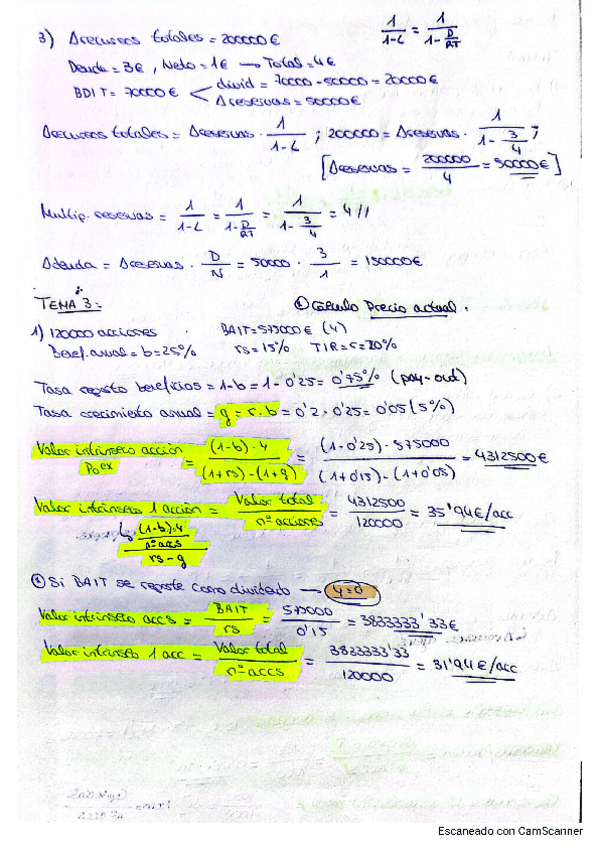 3) Δrecursos totales = 200000€
1/(1-L) = 1/(1-D/RT)
Deuda = 3€, Neto = 1€ → Total = 4€
BDIT = 70000€ < divid = 70000 - 50000 = 20000€
Δreservas = 50000€
Δrecursos totales = Δreservas · 1/(1-L) ; 200000 = Δreservas · 1/(1-3/4) ;
[Δreservas = 200000/4 = 50000€]
Multip. reservas = 1/(1-L) = 1/(1-D/RT) = 1/(1-3/4) = 4//
Δdeuda = Δreservas · D/N = 50000 · 3/1 = 150000€
TEMA 3:
Cálculo Precio actual.
1) 120000 acciones BAIT = 575000€ (Y)
Benef. anual = b = 25% rs = 15% TIR = r = 20%
Tasa reparto beneficios = 1-b = 1-0'25 = 0'75% (pay-out)
Tasa crecimiento anual = g = r·b = 0'2·0'25 = 0'05 (5%)
Valor intrínseco acción P₀ᵉˣ = (1-b)·Y/((1+rs)-(1+g)) = (1-0'25)·575000/((1+0'15)-(1+0'05)) = 4312500€
Valor intrínseco 1 acción = Valor total/nº acciones = 4312500/120000 = 35'94€/acc
↳ ((1-b)·Y/nº accs)/(rs-g)
Si BAIT se reparte como dividendo → g=0
Valor intrínseco accs = BAIT/rs = 575000/0'15 = 3833333'33€
Valor intrínseco 1 acc = Valor total/nº accs = 3833333'33/120000 = 31'94€/acc
Escaneado con CamScanner